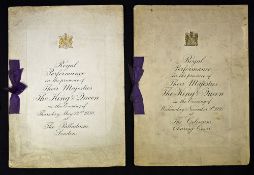 Royal
Performance
in the presence of
Their Majesties
The King & Queen
on the Evening of
Thursday May 22nd 1930
at
The Palladium
London
Royal
Performance
in the presence of
Their Majesties
The King & Queen
on the Evening of
at
The Coliseum
Charing Cross